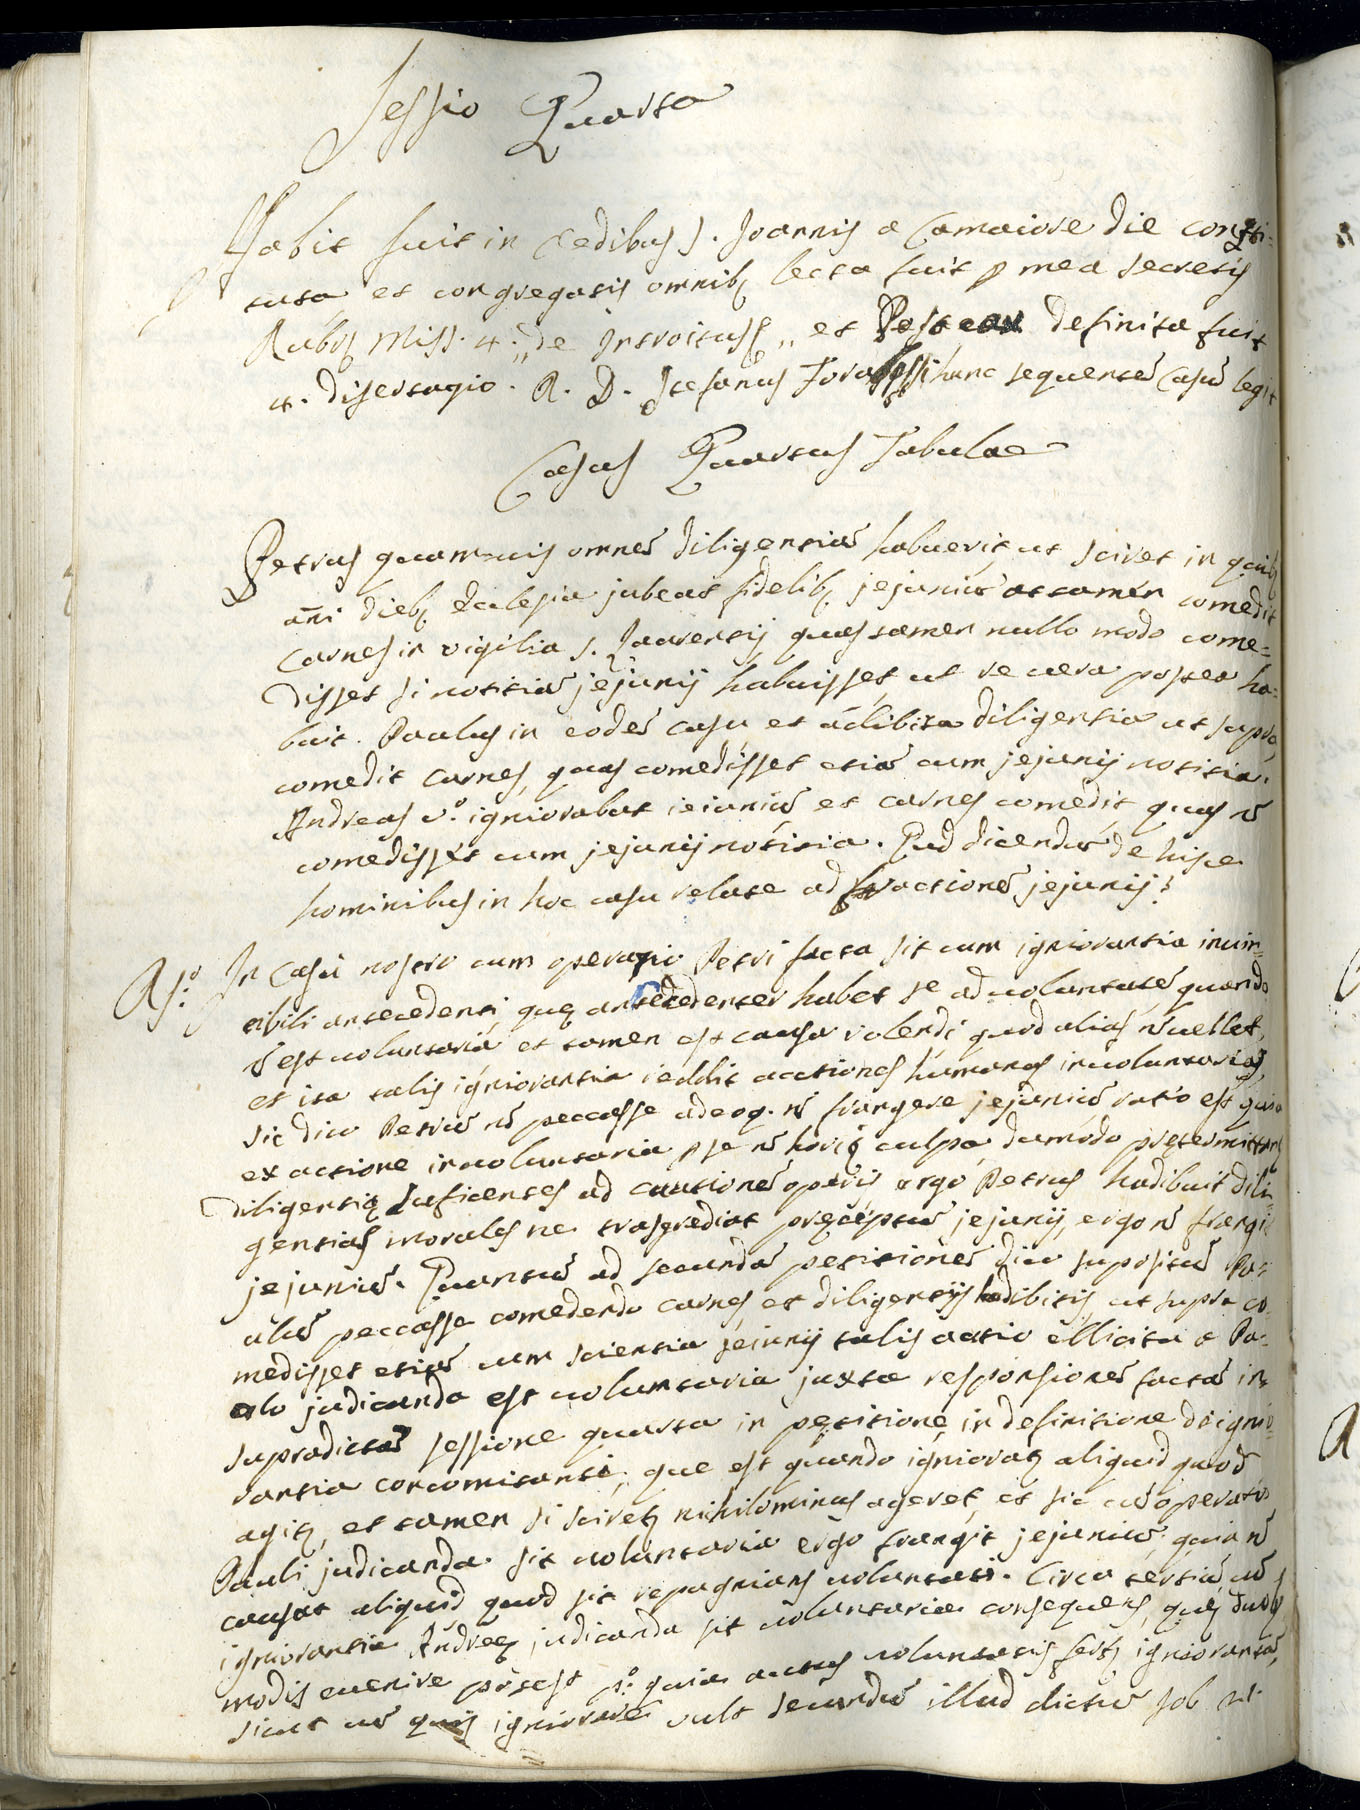 Sessio Quarta
Habit fuit in Ædibus S. Joannis a Camaiore die consti=
tuta, et congregatis omnibꝫ lecta fuit p me a secretis
Rubꝫ Miss. 4. „de Introitus„ et Postea definita fuit
4. disertazio. R. D. Stefanus hunc sequentē Casū legit
Casus Quartus Tabulae
Petrus quamvis omnē diligentiā habuerit ut sciret in quibꝫ
añi diebꝫ Eclesia jubeat fidelibꝫ jejuniū attamen comedit
Carnes in vigilia S. Laurentij quas tamen nullo modo come=
disset si notitiā jejunij habuisset, ut re uera postea ha=
buit. Paulus in eodē casu et adibita diligentia ut supra,
comedit carnes, quas comedisset etiā cum jejunij notitia.
Andreas v.º igniorabat ieiuniū et carnes comedit quas ñ
comedisset cum jejunij notitia. Quid dicendū de hisce
hominibus in hoc casu relate ad fractionē jejunij?
Rs.º In Casu nostro cum operatio Petri facta sit cum igniorantia inuin=
cibili antecedenti, quę antecedenter habet se ad uoluntatē quando
ñ est uoluntaria et tamen est causa volendi quod alias ñ uellet,
et ita talis igniorantia reddit actiones humanas inuoluntarias,
sic dico Petrū ñ peccasse adeoq. ñ frangere jejuniū ratio est quia
ex actione inuoluntaria p se ñ culpa, dumodo prętermittant
diligentię suficentes ad cautionē operis ergo Petrus hadibuit dili=
gentias morales ne trasgrediat pręceptū jejunij, ergo ñ frangit
jejuniū. Quantū ad secundā petitionē dico supositū Pa=
ulū peccasse comedendo carnes, et diligentijs hadibitis ut supra co=
medisset etiā cum scientia jeiunij talis actio ellicita a Pa=
ulo judicanda est uoluntaria juxta responsionē factā in
supradicta sessione quarta in petitione, in definitione de ignio=
rantia concomitanti; que est quando ignioratꝫ aliquid quod
agitꝫ, et tamen si sciretꝫ nihilominus ageret, et sic cū operatio
Pauli judicanda sit uoluntaria ergo frangit jejuniū; quia ñ
causat aliquid quod sit repugnians uoluntati. Circa tertiū cū
igniorantia Andreę judicanda sit uoluntaria consequens, quę duobꝫ
modis euenire potest p.º quia actus uoluntatis fertꝫ igniorantiā,
sicut cū quis igniorare vult secundū illud dictū Job 21.